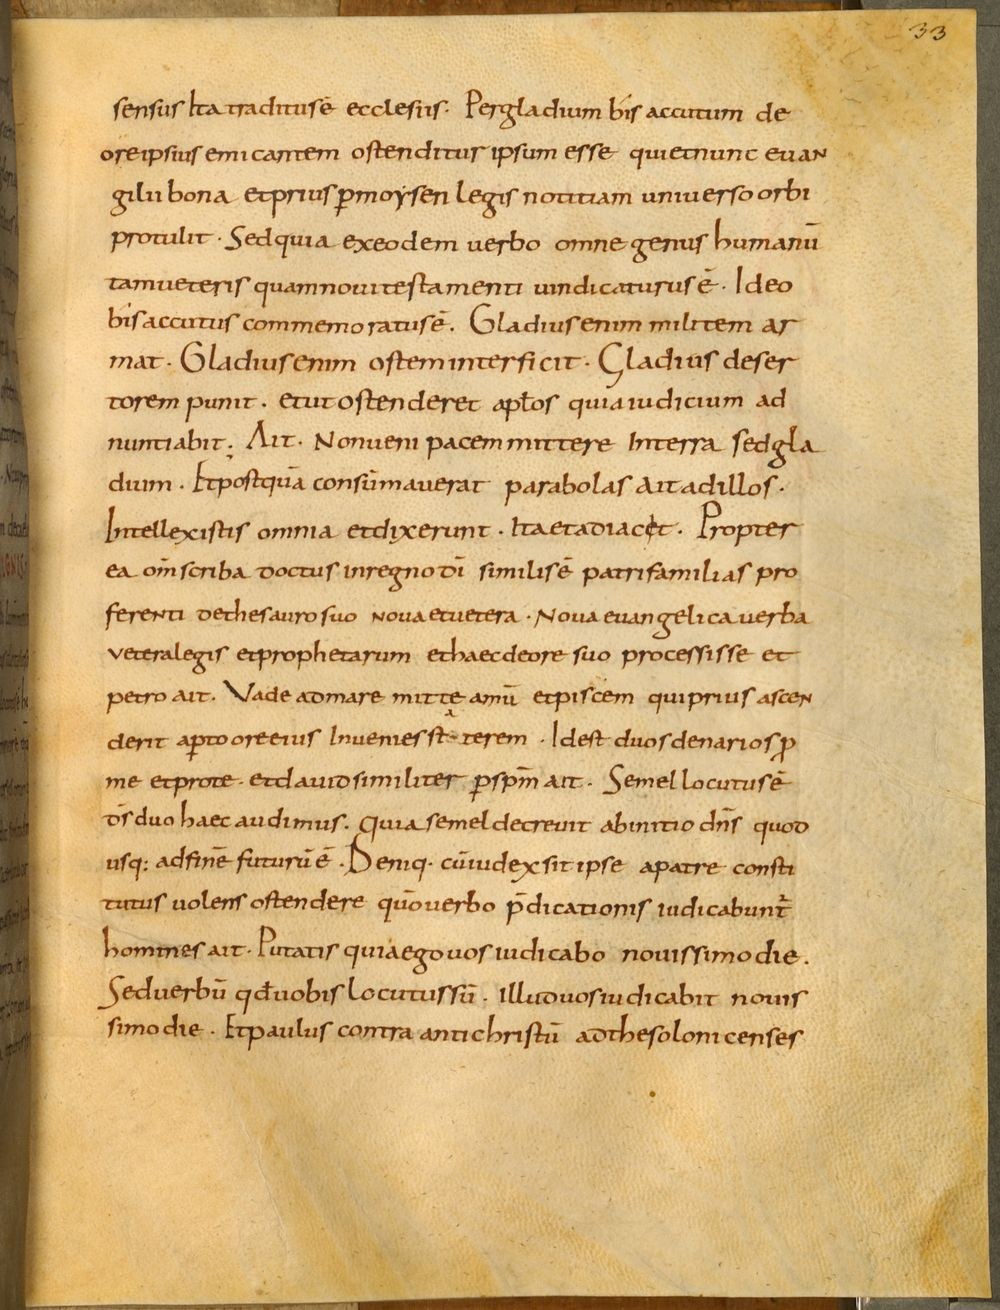 33
sensus Ita traditus ē ecclesiis. Per gladium bis accutum de
ore ipsius emicantem ostenditur ipsum esse qui et nunc euan
gilii bona et prius p̄ moysen legis notitiam uniuerso orbi
protulit. Sed quia ex eodem uerbo omne genus humanū
tam ueteris quam noui testamenti uindicaturus ē. Ideo
bis accutus commemoratus ē. Gladius enim militem ar
mat. Gladius enim ostem interficit. Gladius deser
torem punit. et ut ostenderet apłos quia iudicium ad
nuntiabit; Ait. Non ueni pacem mittere In terra sed gla
dium. Et postquā consūmauerat parabolas ait ad illos.
Intellexistis omnia et dixerunt. Ita et adiacet. Propter
ea om̄ scriba doctus in regno dī similis ē patri familias pro
ferenti de thesauro suo noua et uetera. Noua euangelica uerba
vetera legis et prophetarum et haec de ore suo processisse et
petro ait. Vade ad mare mitte amū et piscem qui prius ascen
derit ap̄to ore eius Inuenies staterem. Id est duos denarios p̱
me et pro te. et dauid similiter p̱ sp̄m ait. Semel locutus ē
d̄s duo haec audimus. quia semel decreuit ab initio dn̄s quod
usq; ad finē futurū ē. Deniq. cū iudex sit ipse a patre consti
tutus uolens ostendere quō uerbo p̄dicationis iudicabunt̄
homines ait. Putatis quia ego uos iudicabo nouissimo die.
Sed uerbū qd̄ uobis locutus sū. illud uos iudicabit nouis
simo die. Et paulus contra antichristū ad thesolonicenses